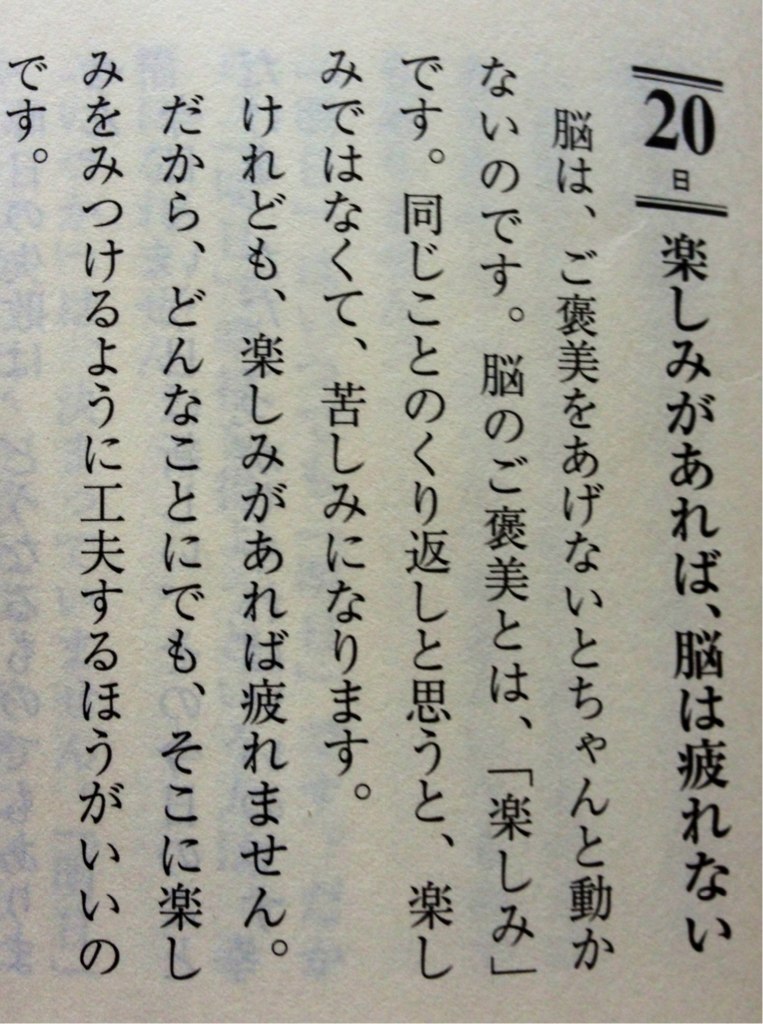 20日
楽しみがあれば、脳は疲れない
脳は、ご褒美をあげないとちゃんと動か
ないのです。脳のご褒美とは、「楽しみ」
です。同じことのくり返しと思うと、楽し
みではなくて、苦しみになります。
けれども、楽しみがあれば疲れません。
だから、どんなことにでも、そこに楽し
みをみつけるように工夫するほうがいいの
です。